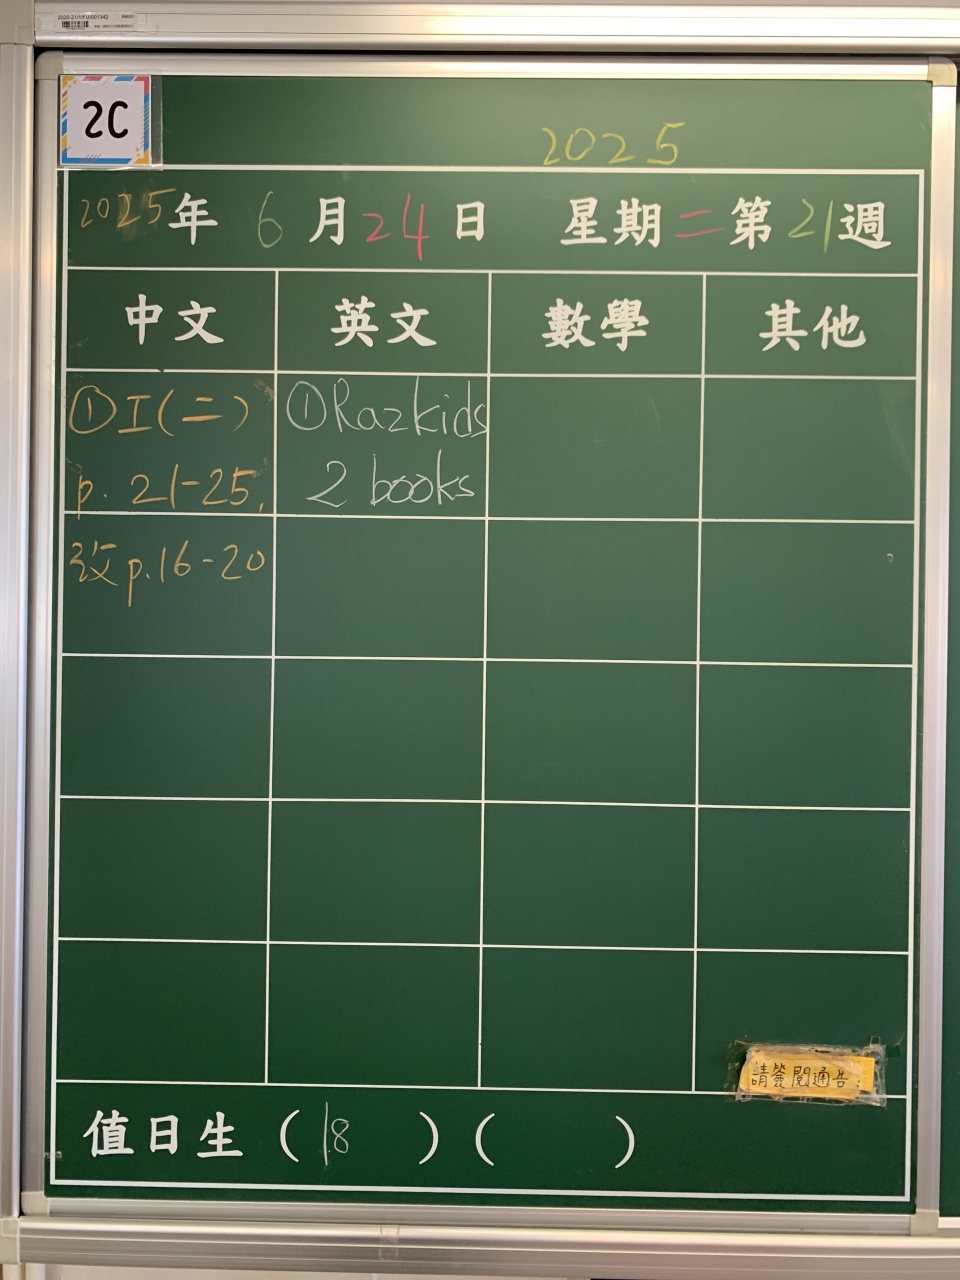 2C
2025
2025年 6月24日 星期二 第21週
中文 英文 數學 其他
①I(二)
p. 21-25,
改p.16-20
①Razkids
2 books
請簽閱通告:
值日生 (18 ) ( )